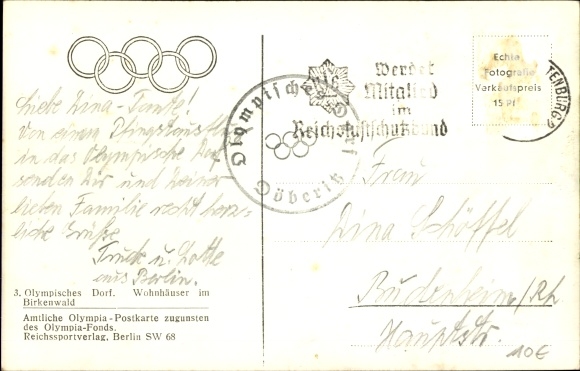 Liebe Dina-Tante!
Von einem Pfingstausflug
in das Olympische Dorf
senden Dir und Deiner
lieben Familie recht herz-
liche Grüße
u. Lotte
aus Berlin.
3. Olympisches Dorf. Wohnhäuser im
Birkenwald
Amtliche Olympia-Postkarte zugunsten
des Olympia-Fonds.
Reichssportverlag, Berlin SW 68
Olympisches Dorf
Döberitz
Werdet
Mitglied
im
Reichsluftschutzbund
Echte
Fotografie
Verkaufspreis
15 Pf
TENBURG 2
Frau
Dina Schöffel
Budenheim/Rh.
Hauptstr.
10€